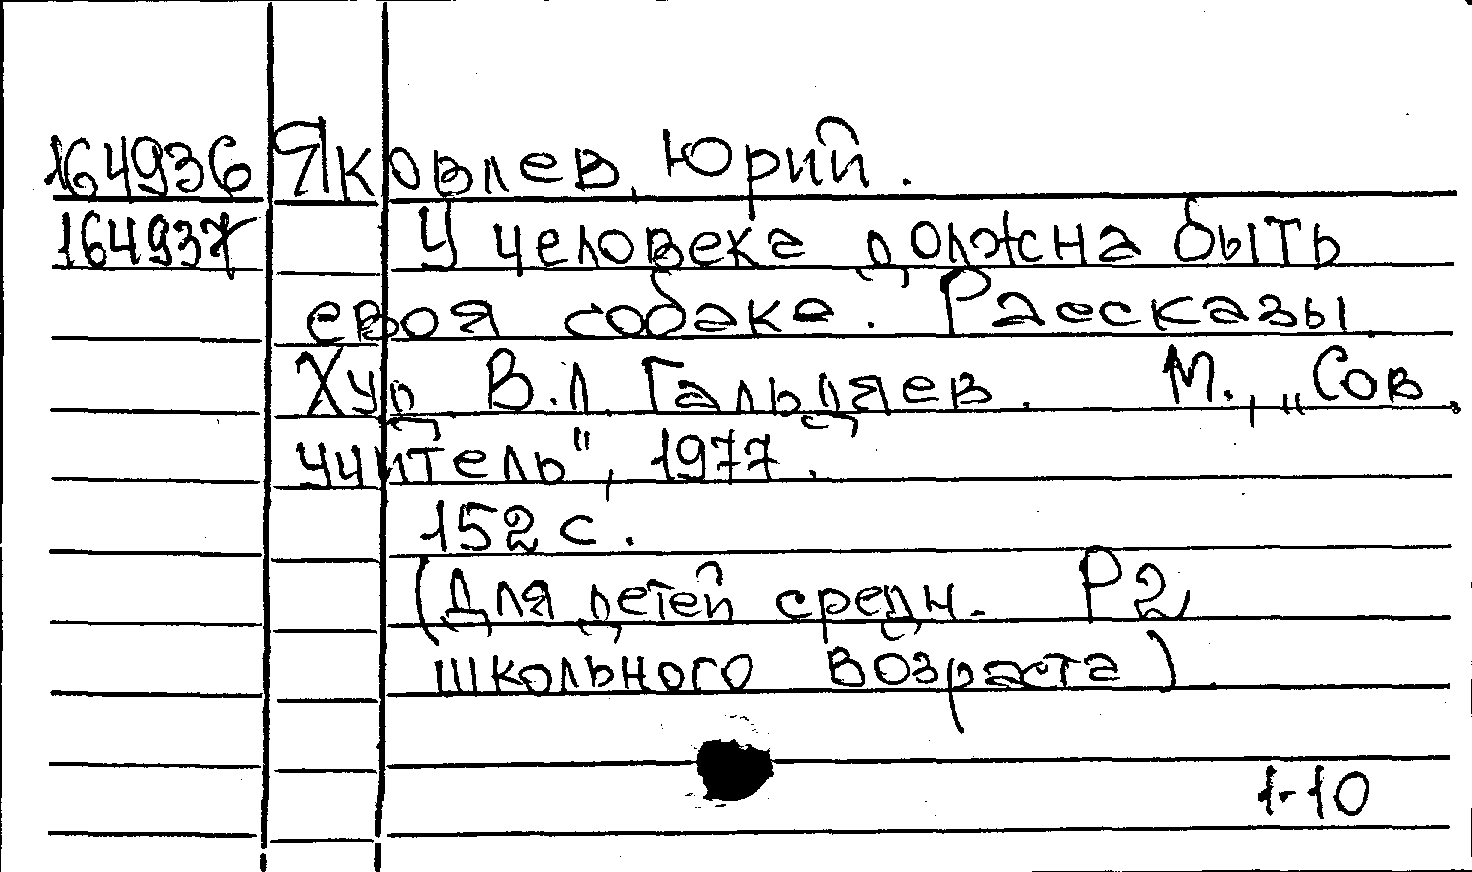 164936 Яковлев, Юрий.
164937 У человека должна быть
своя собака. Рассказы.
Худ. В.Л. Гальдяев. М., „Сов.
учитель", 1977.
152 с.
(Для детей средн. Р2
школьного возраста).
1-10